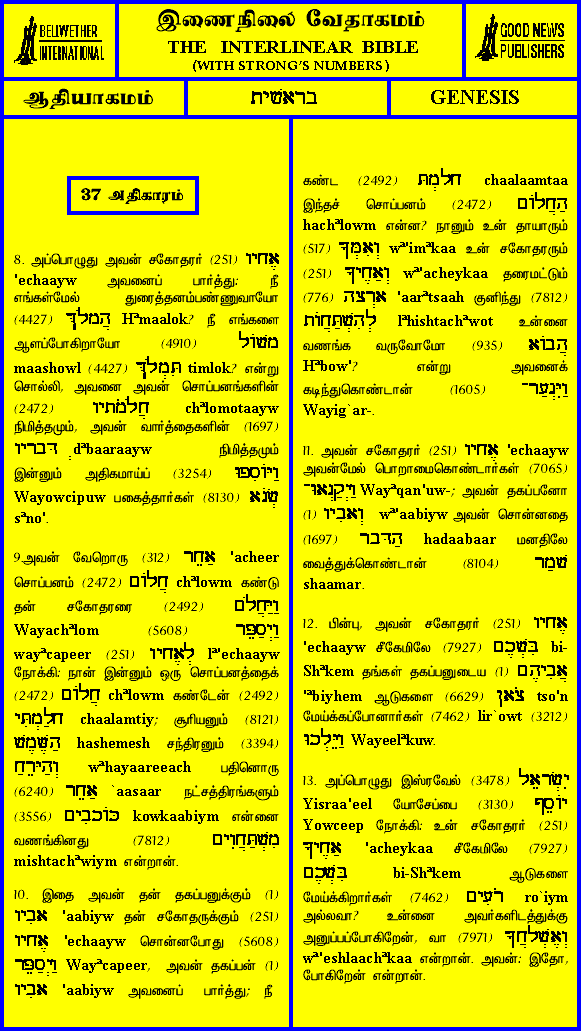 BELLWETHER
INTERNATIONAL
இணைநிலை வேதாகமம்
THE INTERLINEAR BIBLE
(WITH STRONG'S NUMBERS)
GOOD NEWS
PUBLISHERS
ஆதியாகமம்
בראשית
GENESIS
37 அதிகாரம்
8. அப்பொழுது அவன் சகோதரர் (251) אֶחָיו
'echaayw அவனைப் பார்த்து: நீ
எங்கள்மேல் துரைத்தனம்பண்ணுவாயோ
(4427) הֲמָלֹךְ Hªmaalok? நீ எங்களை
ஆளப்போகிறாயோ (4910) מָשׁוֹל
maashowl (4427) תִּמְלֹךְ timlok? என்று
சொல்லி, அவனை அவன் சொப்பனங்களின்
(2472) חֲלֹמֹתָיו chªlomotaayw
நிமித்தமும், அவன் வார்த்தைகளின் (1697)
דְּבָרָיו dªbaaraayw நிமித்தமும்
இன்னும் அதிகமாய்ப் (3254) וַיּוֹסִפוּ
Wayowcipuw பகைத்தார்கள் (8130) שְׂנֹא
sªno'.
9.அவன் வேறொரு (312) אַחֵר 'acheer
சொப்பனம் (2472) חֲלוֹם chªlowm கண்டு
தன் சகோதரரை (2492) וַיַּחֲלֹם
Wayachªlom (5608) וַיְסַפֵּר
wayªcapeer (251) לְאֶחָיו lª'echaayw
நோக்கி: நான் இன்னும் ஒரு சொப்பனத்தைக்
(2472) חֲלוֹם chªlowm கண்டேன் (2492)
חָלַמְתִּי chaalamtiy; சூரியனும் (8121)
הַשֶּׁמֶשׁ hashemesh சந்திரனும் (3394)
וְהַיָּרֵחַ wªhayaareeach பதினொரு
(6240) אַחֵר `aasaar நட்சத்திரங்களும்
(3556) כּוֹכָבִים kowkaabiym என்னை
வணங்கினது (7812) מִשְׁתַּחֲוִים
mishtachªwiym என்றான்.
10. இதை அவன் தன் தகப்பனுக்கும் (1)
אָבִיו 'aabiyw தன் சகோதருக்கும் (251)
אֶחָיו 'echaayw சொன்னபோது (5608)
וַיְסַפֵּר Wayªcapeer, அவன் தகப்பன் (1)
אָבִיו 'aabiyw அவனைப் பார்த்து; நீ
கண்ட (2492) חָלָמְתָּ chaalaamtaa
இந்தச் சொப்பனம் (2472) הַחֲלוֹם
hachªlowm என்ன? நானும் உன் தாயாரும்
(517) וְאִמְּךָ wª'imªkaa உன் சகோதரரும்
(251) וְאַחֶיךָ wª'acheykaa தரைமட்டும்
(776) אָרְצָה 'aarªtsaah குனிந்து (7812)
לְהִשְׁתַּחֲוֹת lªhishtachªwot உன்னை
வணங்க வருவோமோ (935) הֲבוֹא
Hªbow'? என்று அவனைக்
கடிந்துகொண்டான் (1605) וַיִּגְעַר־
Wayig`ar-.
11. அவன் சகோதரர் (251) אֶחָיו 'echaayw
அவன்மேல் பொறாமைகொண்டார்கள் (7065)
וַיְקַנְאוּ־ Wayªqan'uw-; அவன் தகப்பனோ
(1) וְאָבִיו wª'aabiyw அவன் சொன்னதை
(1697) הַדָּבָר hadaabaar மனதிலே
வைத்துக்கொண்டான் (8104) שָׁמַר
shaamar.
12. பின்பு, அவன் சகோதரர் (251) אֶחָיו
'echaayw சீகேமிலே (7927) בִּשְׁכֶם bi-
Shªkem தங்கள் தகப்பனுடைய (1) אֲבִיהֶם
'ªbiyhem ஆடுகளை (6629) צֹאן tso'n
மேய்க்கப்போனார்கள் (7462) lir`owt (3212)
וַיֵּלְכוּ Wayeelªkuw.
13. அப்பொழுது இஸ்ரவேல் (3478) יִשְׂרָאֵל
Yisraa'eel யோசேப்பை (3130) יוֹסֵף
Yowceep நோக்கி: உன் சகோதரர் (251)
אַחֶיךָ 'acheykaa சீகேமிலே (7927)
בִּשְׁכֶם bi-Shªkem ஆடுகளை
மேய்க்கிறார்கள் (7462) רֹעִים ro`iym
அல்லவா? உன்னை அவர்களிடத்துக்கு
அனுப்பப்போகிறேன், வா (7971) וְאֶשְׁלָחֲךָ
wª'eshlaachªkaa என்றான். அவன்: இதோ,
போகிறேன் என்றான்.